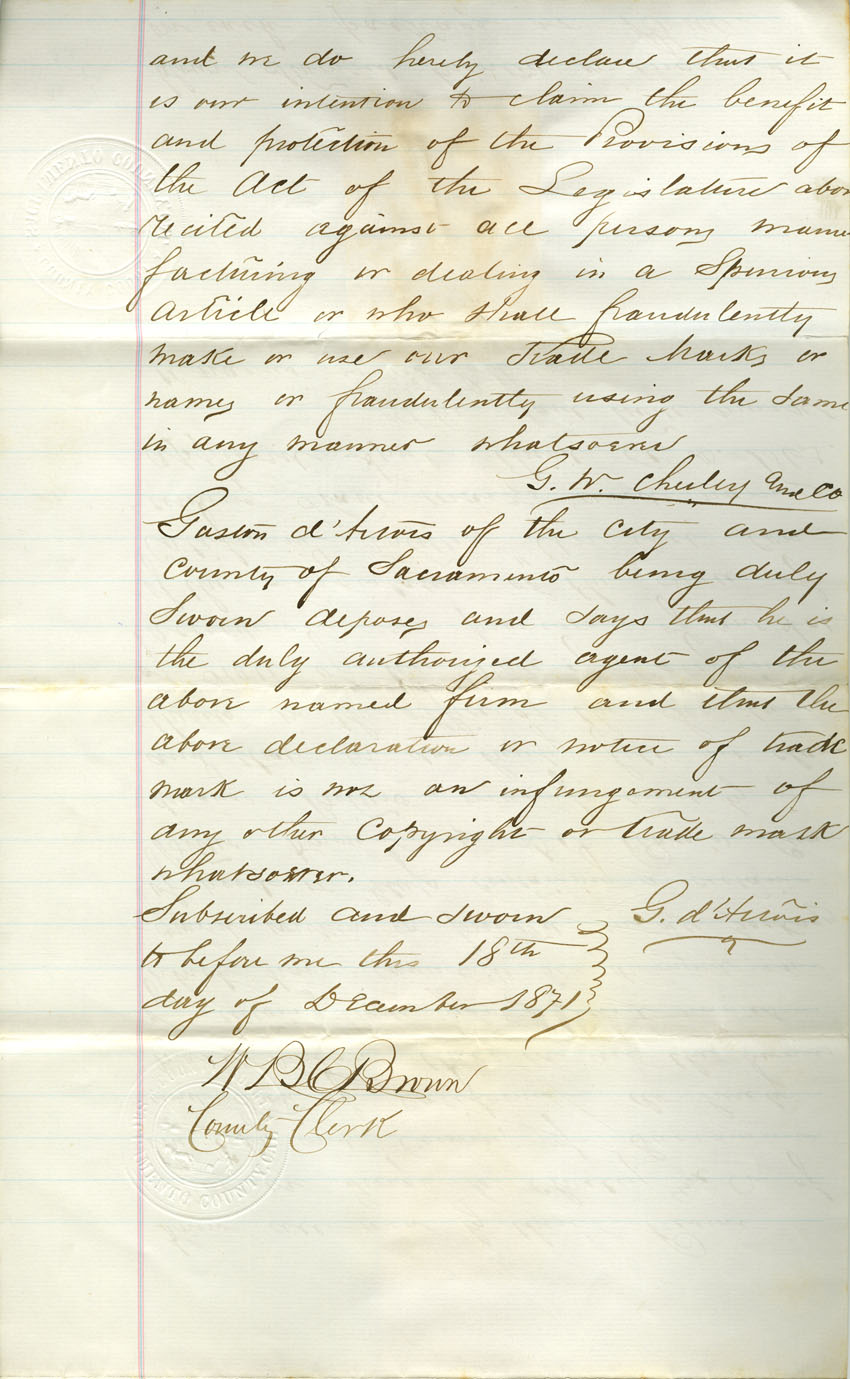 and we do herely declare that it
is our intention to claim the benefit
and protection of the Provisions of
the Act of the Legislature abov
recited against all persons manu
facturing or dealing in a Spurious
article or who shall fraudulently
make or use our Trade Marks or
names or fraudulently using the same
in any manner whatsoever
G. W. Chesley and Co
Gaston d'Artois of the city and
County of Sacramento being duly
Sworn deposes and says that he is
the duly authorized agent of the
above named firm and that the
above declaration or notice of trade
mark is not an infungement of
any other Copyright or trade mark
whatsoever.
Subscribed and sworn
to before me this 18th
day of December 1871
G. d'Artois
W B C Brown
County Clerk
MENTO COUNTY